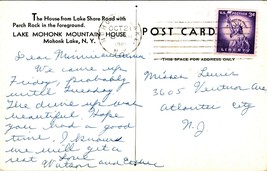 The House from Lake Shore Road with
Perch Rock in the foreground.
LAKE MOHONK MOUNTAIN HOUSE
Mohonk Lake, N. Y.
POST CARD
OCT 21
3¢
Dear
We came up
Friday probably
until Tuesday.
The drive up was
beautiful. Hope
you had a good
time, I know
we will get a
rest Love
Watson and
Misses
3605 Ventnor Ave
Atlantic City
N.J